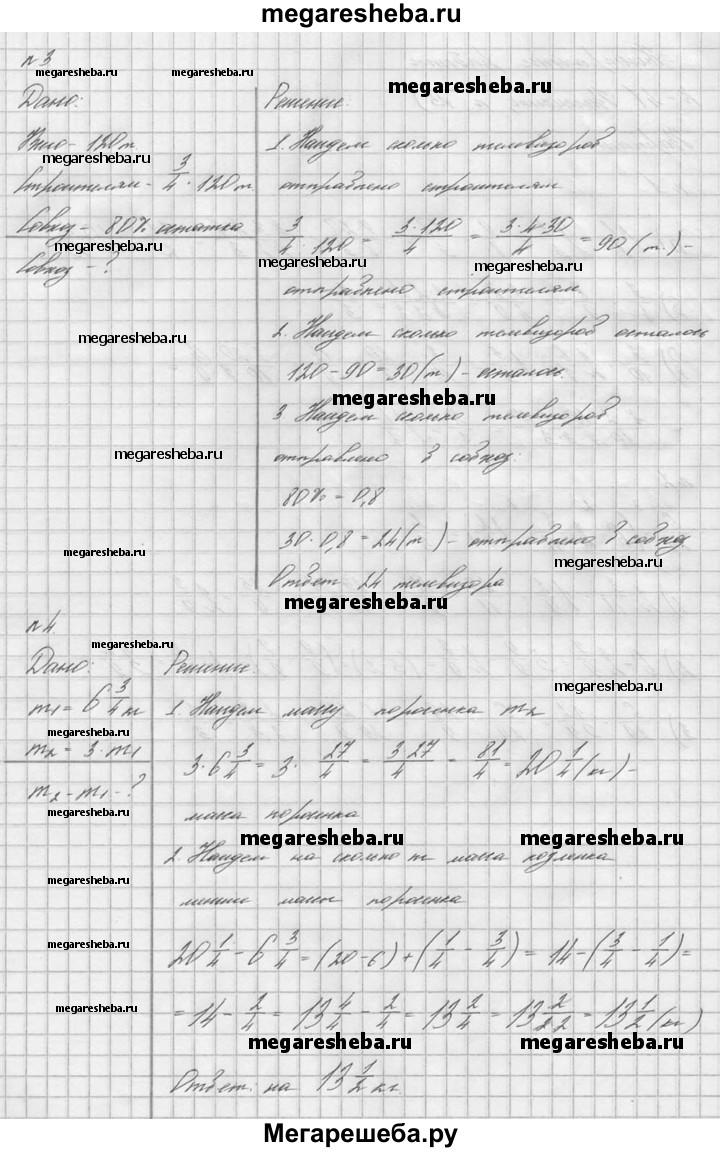 megaresheba.ru
№3
megaresheba.ru
megaresheba.ru
Дано:
Решение:
Было - 120 т.
1. Найдем сколько телевизоров
megaresheba.ru
Строителям - 3/4 · 120 т.
отправлено строителям
Совхоз - 80% остатка
3/4 · 120 = 3·120/4 = 3·4·30/4 = 90 (т.) -
Совхоз - ?
megaresheba.ru
megaresheba.ru
отправлено строителям
megaresheba.ru
2. Найдем сколько телевизоров осталось
120 - 90 = 30 (т.) - осталось.
megaresheba.ru
3 Найдем сколько телевизоров
megaresheba.ru
отправлено в совхоз:
80% = 0,8
30 · 0,8 = 24 (т) - отправлено в совхоз
megaresheba.ru
megaresheba.ru
Ответ 24 телевизора
megaresheba.ru
№4
megaresheba.ru
Дано:
Решение:
megaresheba.ru
m1 = 6 3/4 кг
1. Найдем массу поросенка m2
m2 = 3 · m1
3 · 6 3/4 = 3 · 27/4 = 3·27/4 = 81/4 = 20 1/4 (кг) -
m2 - m1 - ?
megaresheba.ru
масса поросенка
megaresheba.ru
megaresheba.ru
2. Найдем на сколько m масса козленка
megaresheba.ru
меньше массы поросенка
megaresheba.ru
20 1/4 - 6 3/4 = (20 - 6) + (1/4 - 3/4) = 14 - (3/4 - 1/4) =
megaresheba.ru
= 14 - 2/4 = 13 4/4 - 2/4 = 13 2/4 = 13 2/2·2 = 13 1/2 (кг)
megaresheba.ru
megaresheba.ru
Ответ: на 13 1/2 кг.
Мегарешеба.ру